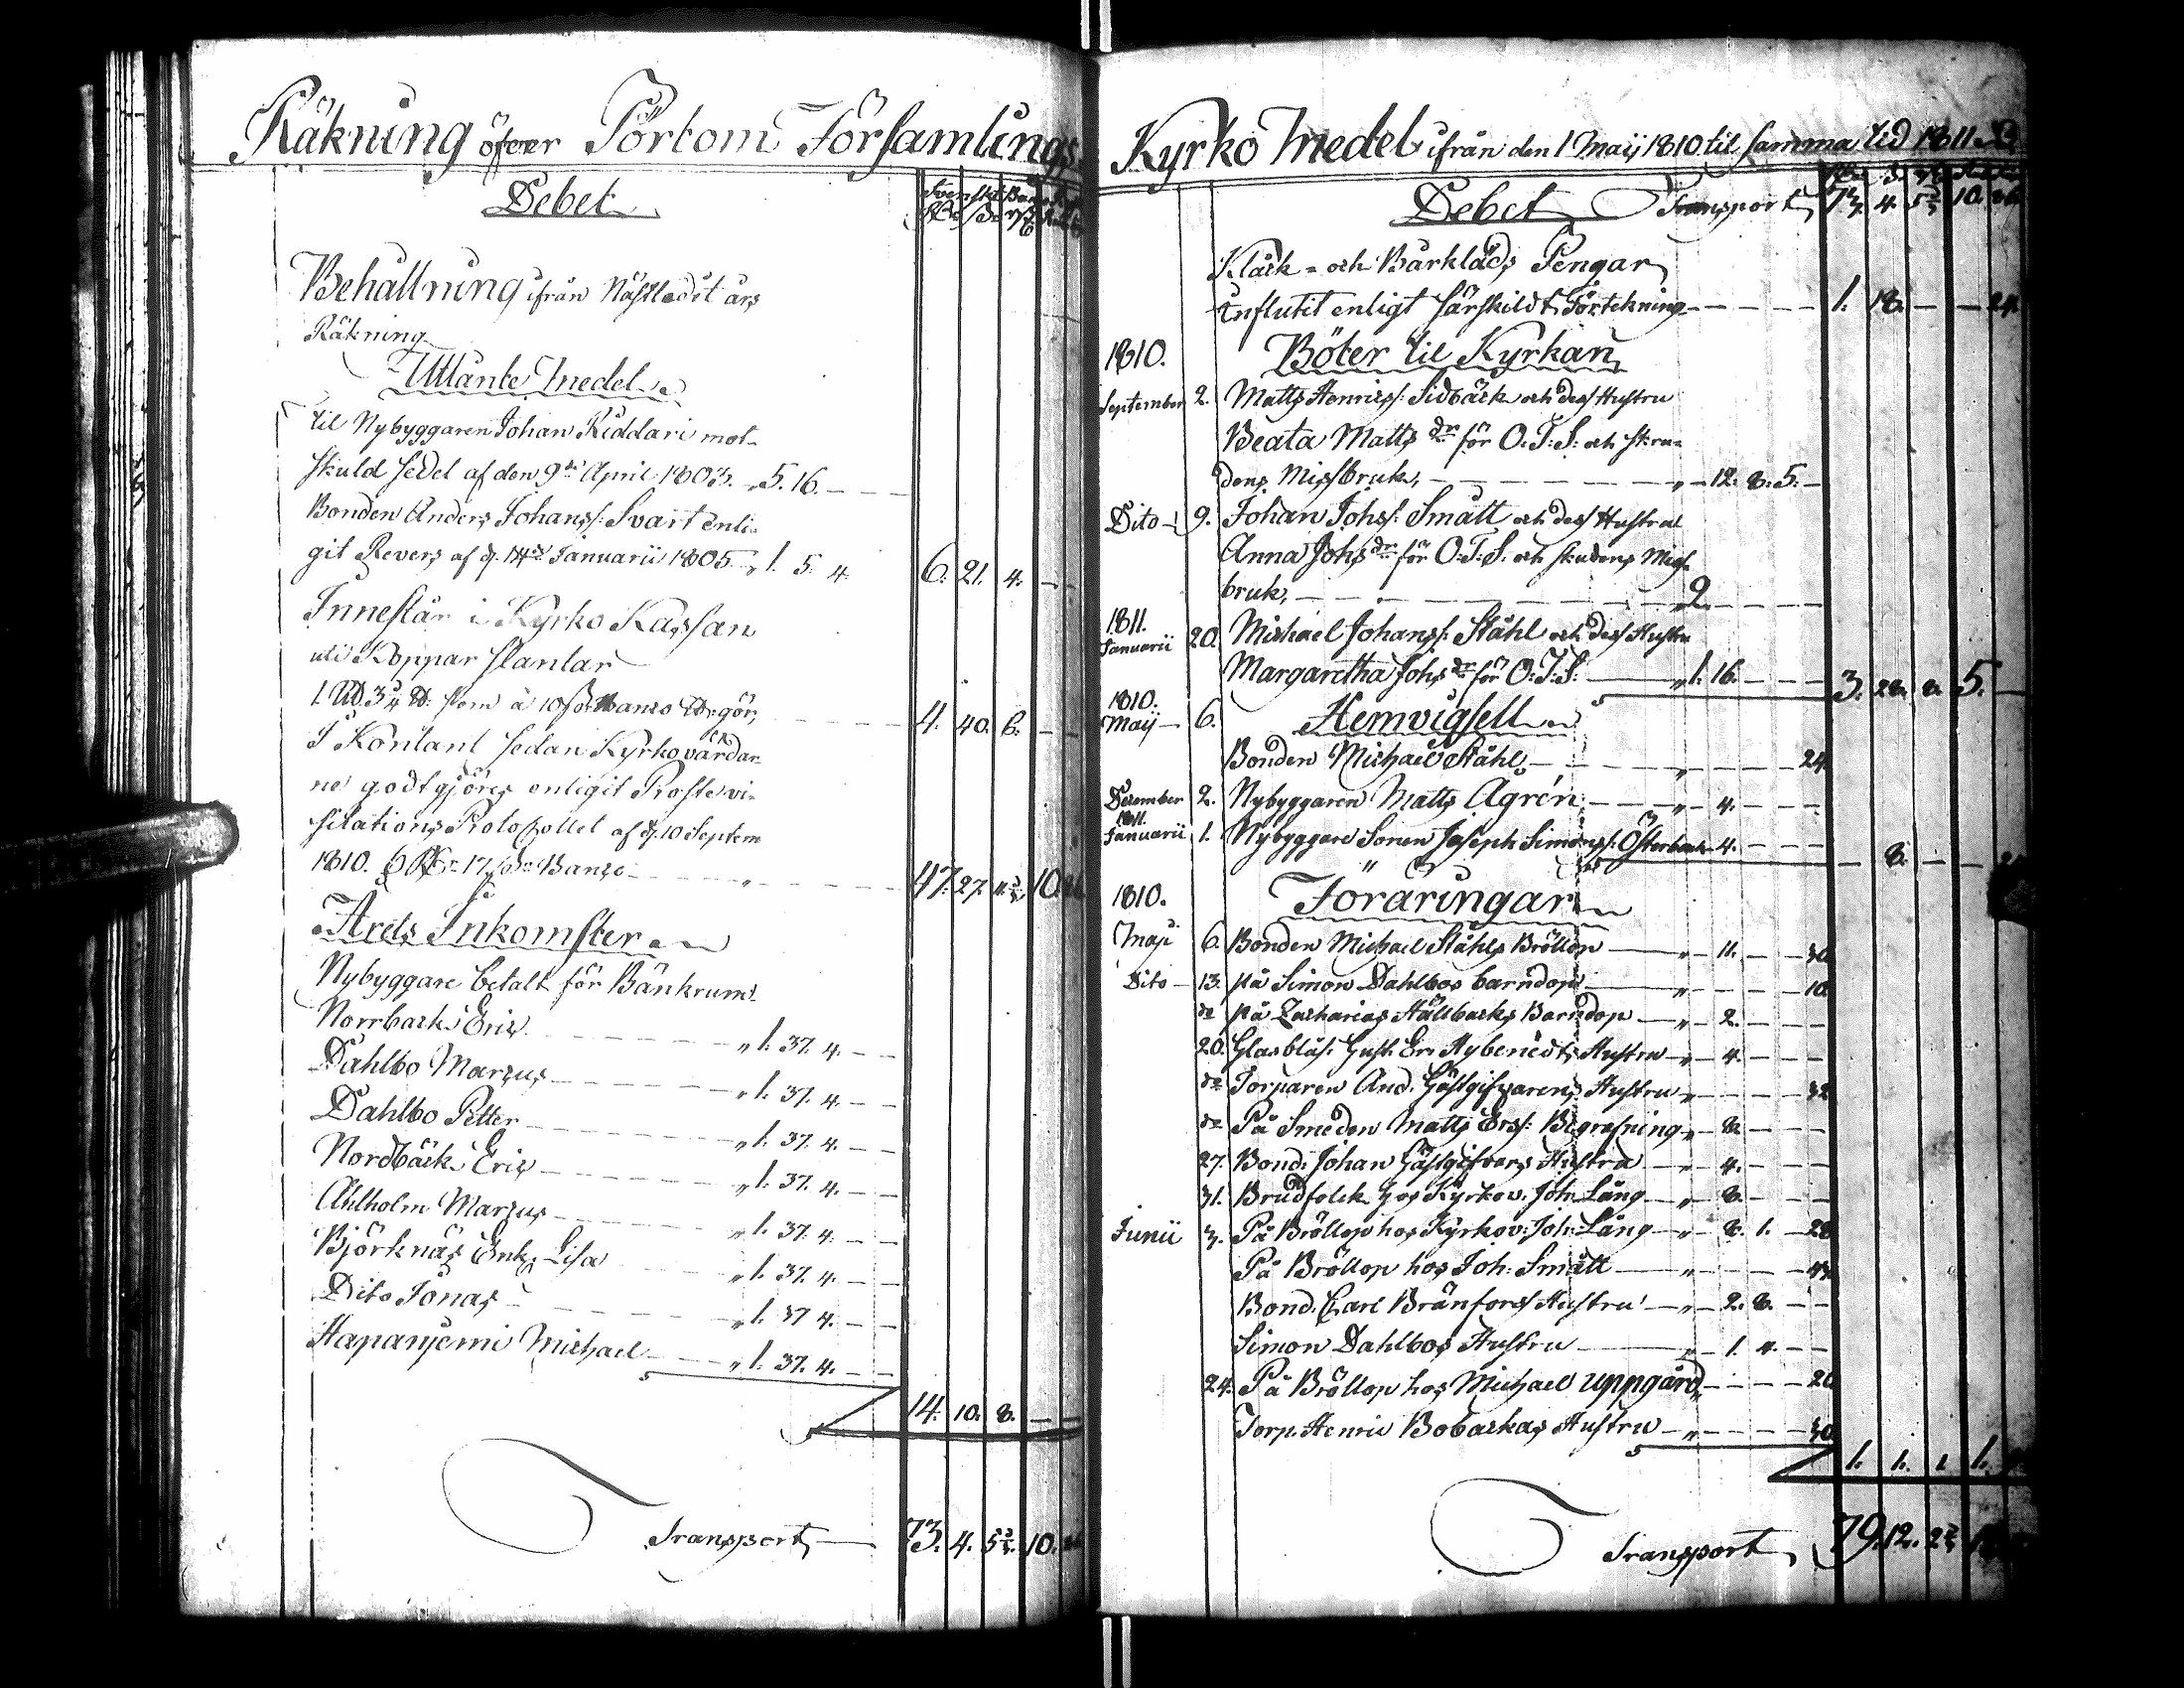 Räkning öfver Pörtom Församlings
Debet
Svenskt Banco
Behållning ifrån Nästledit års
Räkning
Utlänte Medel
til Nybyggaren Johan Riddari mot
skuld sedel af den 9de April 1803. " 5. 16. — —
Bonden Anders Johanss: Svart enli-
git Revers af d. 14de Januarii 1805. " 1. 5. 4. 6. 21. 4. —
Innestår i Kyrko Kassan
uti Koppar slantar
1 Ud 3/4 som à 10 Banco gör, 4. 40. 6. —
I Kontant sedan Kyrkovärdar-
ne godtgjöres enligit Prostevi-
sitations Protocollet af d. 10 Septem
1810. 6 Rd 17 s. Banco — " — 47. 27. 10.
Årets Inkomster
Nybyggare betalt för Bänkrum
Norrback Eric — " 1. 37. 4. — —
Dahlbo Marcus — " 1. 37. 4. — —
Dahlbo Petter — " 1. 37. 4. — —
Nordbäck Eric — " 1. 37. 4. — —
Ahlholm Marcus — " 1. 37. 4. — —
Björknäs Enk. Lisa " 1. 37. 4. — —
Dito Jonas — " 1. 37 4. — —
Hapanjemi Michael — " 1. 37. 4. — —
14. 10. 8. — —
Transport — 73. 4. 5 2/3. 10.
Kyrko Medel ifrån den 1 Maij 1810 til samma tid 1811
Debet Transport 73. 4. 5 2/3 10.
Klock- och Bårkläds Pengar
Influtit enligt särskildt Förtekning — — — 1. 18. — — 24.
1810. Böter til Kyrkan
September 2. Matts Henricss: Sidbäck och dess Hustru
Beata Matts dr för O: T: S: och skru-
dens Missbruk, — — — " — 12. 8. 5. —
Dito — 9. Johan Johss: Smått och dess Hustru
Anna Johs dr för O: T: S: och skrudens Miss-
bruk, — — — " 2. — — —
1811.
Januarii 20. Michael Johanss: Ståhl och dess Hustru
Margaretha Johs dr för O: T: S: — " 1. 16. — — — 3. 28. 8. 5. —
1810.
Maij — 6. Hemvigsell
Bonden Michael Ståhl — — " — — — 24.
December 2. Nybyggaren Matts Agrén — — " — 4. — — —
1811.
Januarii 1. Nybyggare Sonen Joseph Simonss: Österback 4. — — — — 8. — —
1810. Föräringar
Maji 6. Bonden Michael Ståhls Bröllop — " — 11. — — 30
Dito — 13. på Simon Dahlbos barndop — " — — — 10.
do på Zacharias Hällbacks Barndop — " — 2. — — —
20. Glasblås: Gust. Er. Nybenedts Hustru — " — 4. — — —
do Torparen And. Gästgifvarens Hustru " — — — — 32
do På Smeden Matts Erss: Begrafning " — 8. — — —
27. Bond. Johan Gästgifvars Hustru — " — 4. — — —
31. Brudfolck hos Kyrkov. Joh. Lång — " — 8. — — —
Junii 3. På Bröllop hos Kyrkov. Joh: Lång — " — 8. 1. — 28
På Bröllop hos Joh: Smått — " — — —
Bond. Carl Bränfors Hustru — " — 2. 8. — —
Simon Dahlbos Hustru — " — 1. 4. — —
24. På Bröllop hos Michael Uppgård — — — — 20
Torp. Henric Bobackas Hustru — " — — — — 30
1. 1. 1. 1.
Transport 79. 12. 2 2/3